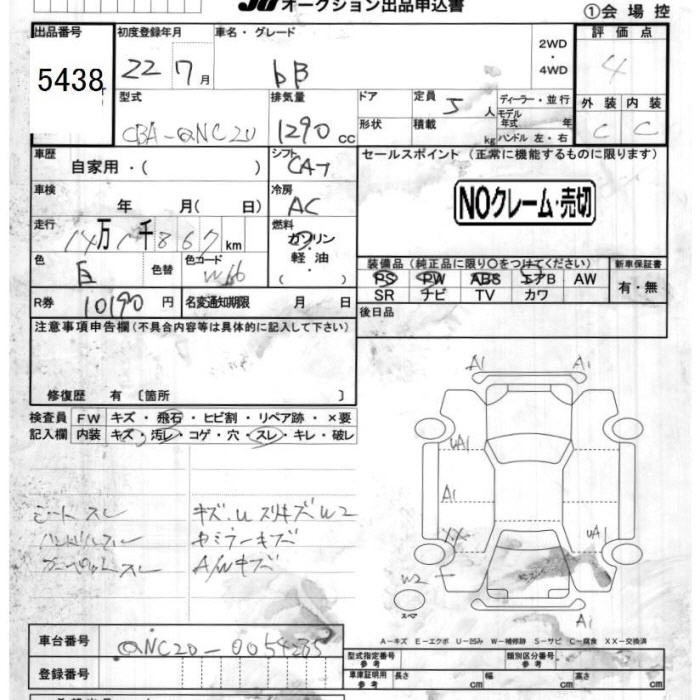 オークション出品申込書
①会場控
出品番号 初度登録年月 車名・グレード 評価点
5438 22 7月 bB 2WD・4WD 4
型式 排気量 ドア 定員 5人 ディーラー・並行 外装 内装
CBA-QNC20 1290cc 形状 積載 kg モデル年式 年 ハンドル 左・右 C C
車歴 自家用・( ) シフト CA7 セールスポイント (正常に機能するものに限ります)
車検 年 月( 日) 冷房 AC NOクレーム・売切
走行 14万1千867km 燃料 ガソリン・軽油・( )
色 色替 色コード W16 装備品(純正品に限り○をつけてください) 新車保証書
PS PW ABS エアB AW 有・無
SR ナビ TV カワ
R券 10190円 名変通知期限 月 日 後日品
注意事項申告欄(不具合内容等は具体的に記入して下さい)
修復歴 有 〔箇所 〕
検査員 FW キズ・飛石・ヒビ割・リペア跡・×要
記入欄 内装 キズ・汚レ・コゲ・穴・スレ・キレ・破レ
シートスレ キズ.UスリキズW2
ハンドルスレ
A/Wキズ
A1 A1
UA1
A1
XX UA1
W2
A1
A-キズ E-エクボ U-凹み W-補修跡 S-サビ C-腐食 XX-交換済
車台番号 QNC20-0054235
登録番号
型式指定番号 参考 類別区分番号 参考
車庫証明用 参考 長さ cm 幅 cm 高さ cm